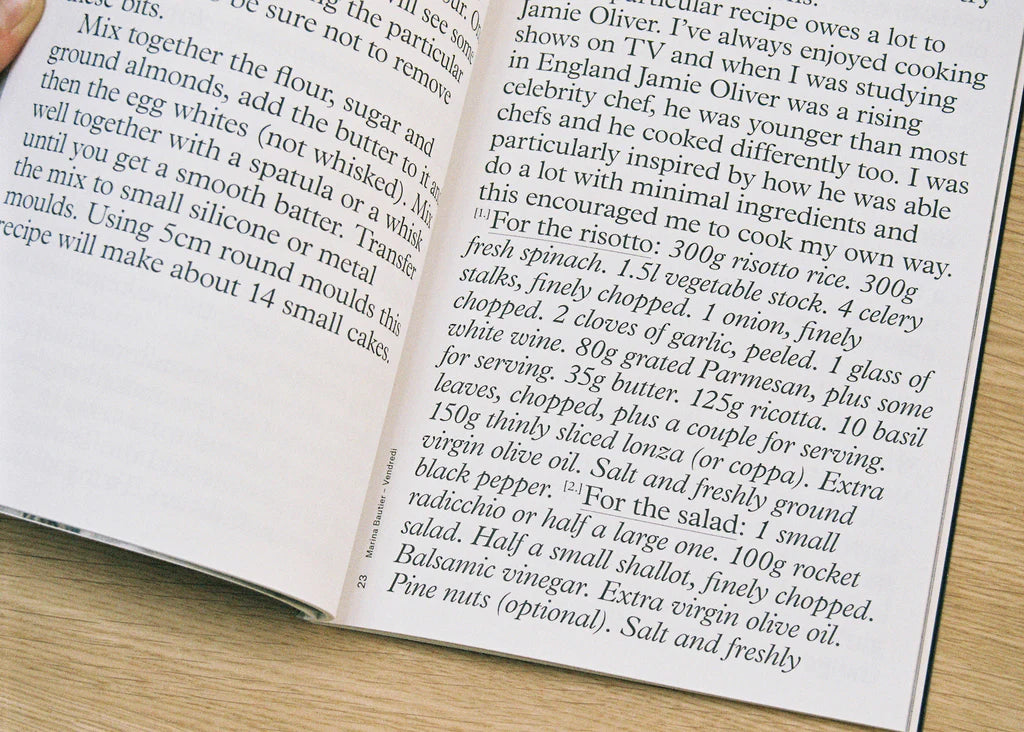 these bits.
our. O
will see some
ing the particular
be sure not to remove
Mix together the flour, sugar and
ground almonds, add the butter to it and
then the egg whites (not whisked). Mix
well together with a spatula or a whisk
until you get a smooth batter. Transfer
the mix to small silicone or metal
moulds. Using 5cm round moulds this
recipe will make about 14 small cakes.
23 Marina Bautier – Vendredi
particular recipe owes a lot to
Jamie Oliver. I've always enjoyed cooking
shows on TV and when I was studying
in England Jamie Oliver was a rising
celebrity chef, he was younger than most
chefs and he cooked differently too. I was
particularly inspired by how he was able
do a lot with minimal ingredients and
this encouraged me to cook my own way.
[1.]For the risotto: 300g risotto rice. 300g
fresh spinach. 1.5l vegetable stock. 4 celery
stalks, finely chopped. 1 onion, finely
chopped. 2 cloves of garlic, peeled. 1 glass of
white wine. 80g grated Parmesan, plus some
for serving. 35g butter. 125g ricotta. 10 basil
leaves, chopped, plus a couple for serving.
150g thinly sliced lonza (or coppa). Extra
virgin olive oil. Salt and freshly ground
black pepper. [2.]For the salad: 1 small
radicchio or half a large one. 100g rocket
salad. Half a small shallot, finely chopped.
Balsamic vinegar. Extra virgin olive oil.
Pine nuts (optional). Salt and freshly